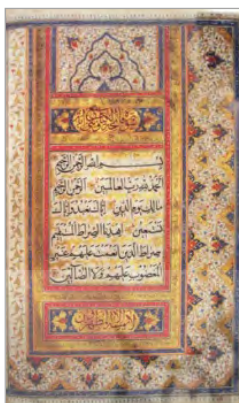 بِسْمِ اللهِ الرَّحْمنِ الرَّحِيمِ
الْحَمْدُ لِلّهِ رَبِّ الْعَالَمِينَ الرَّحْمنِ الرَّحِيمِ
مَالِكِ يَوْمِ الدِّينِ إِيَّاكَ نَعْبُدُ وَإِيَّاكَ
نَسْتَعِينُ اهْدِنَا الصِّرَاطَ الْمُسْتَقِيمَ
صِرَاطَ الَّذِينَ أَنْعَمْتَ عَلَيْهِمْ غَيْرِ
الْمَغْضُوبِ عَلَيْهِمْ وَلَا الضَّالِّينَ
لا يمسه الا المطهرون